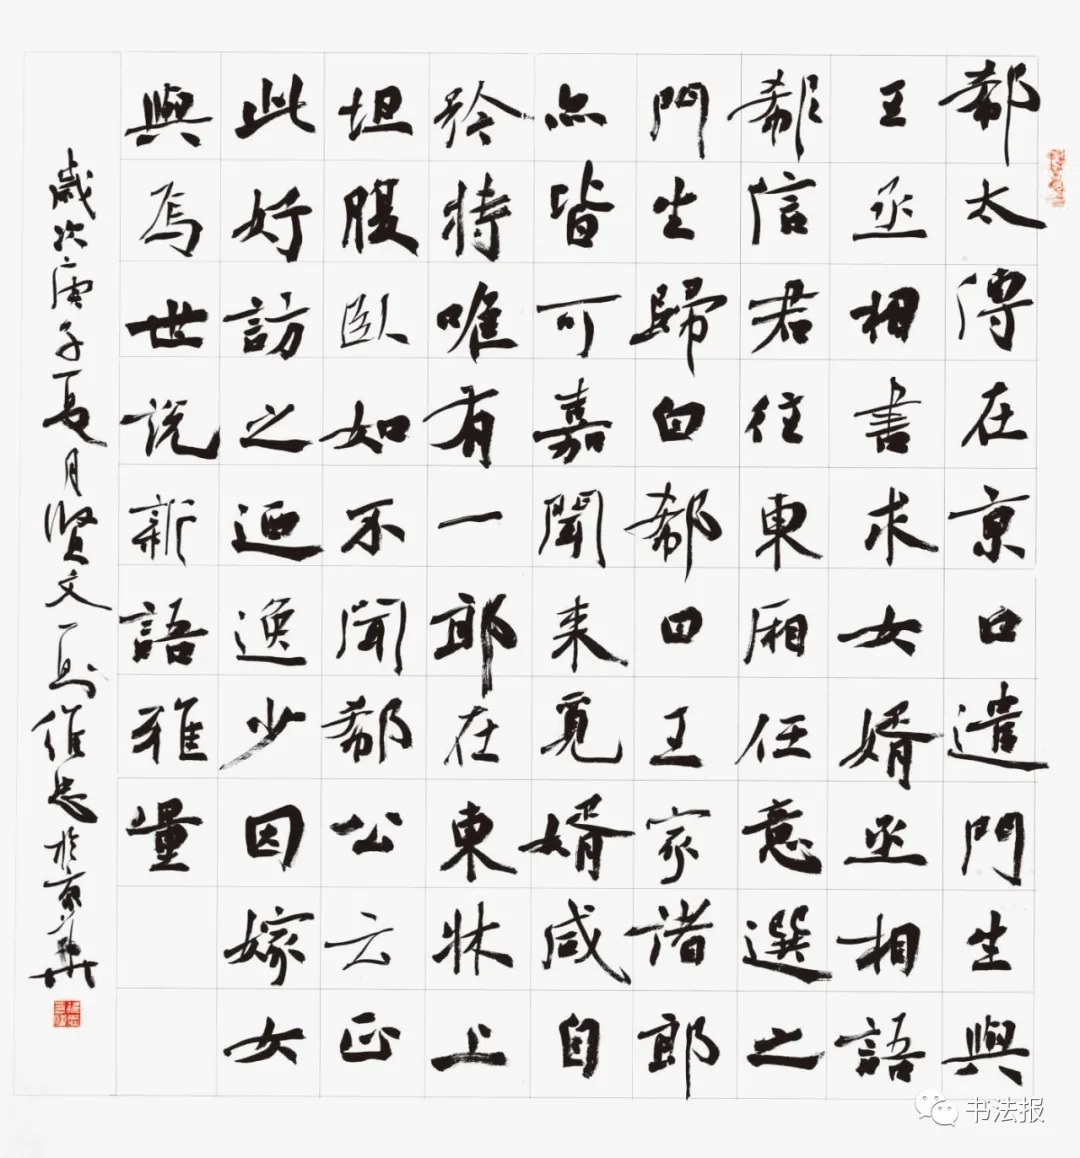 郗太傅在京口遣門生與
王丞相書求女婿丞相語
郗信君往東厢任意選之
門生歸白郗曰王家諸郎
亦皆可嘉聞来覓婿咸自
矜持唯有一郎在東牀上
坦腹臥如不聞郗公云正
此好訪之迺逸少因嫁女
與焉世説新語雅量
歲次庚子夏月賢文一則忠於京華
书法报